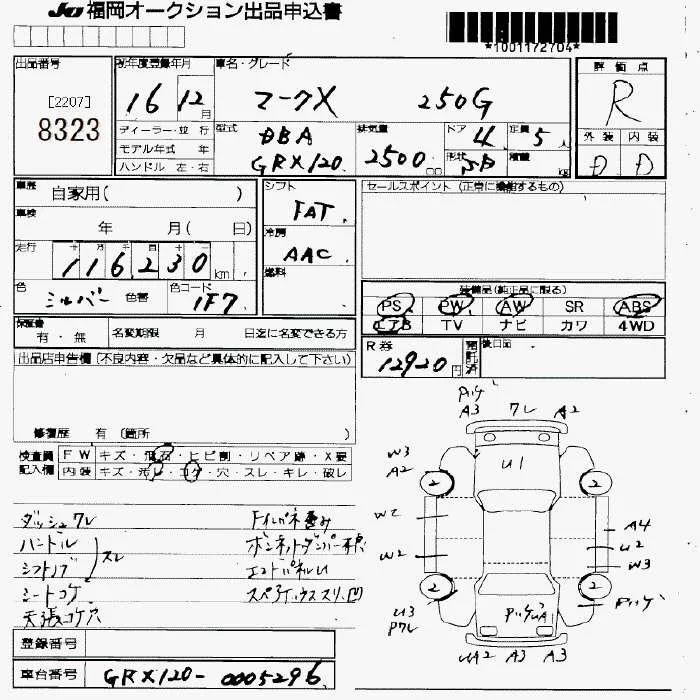 JU 福岡オークション出品申込書
*1001172704*
出品番号
[2207]
8323
初年度登録年月
16 12月
車名・グレード
マークX 250G
評価点
R
外装 内装
D D
ディーラー・並行
モデル年式 年
ハンドル 左・右
型式
DBA
GRX120
排気量
2500 cc
ドア
4
形状
SD
定員
5人
積載
kg
車歴
自家用( )
車検
年 月( 日)
走行
116,230 km
色
シルバー 色替
色コード
1F7
シフト
FAT
冷房
AAC
燃料
セールスポイント (正常に機能するもの)
装備品(純正品に限る)
PS PW AW SR ABS
エアB TV ナビ カワ 4WD
R券
12920円
預託済
後日品
保証書
有・無
名変期限 月 日迄に名変できる方
出品店申告欄(不良内容・欠品など具体的に記入して下さい)
修復歴 有 (箇所 )
検査員記入欄
FW キズ・飛石・ヒビ割・リペア跡・X要
内装 キズ・汚レ・コゲ・穴・スレ・キレ・破レ
ダッシュワレ
ハンドル
シフトノブ
スレ
シートコゲ
天張コゲ穴
ボンネットダンパー
エンドパネルU
登録番号
車台番号
GRX120-0005296
ハゲ
A3 ワレ A2
W3
A2
U1
2 2
W2
W2
A4
U2
W3
2 2
U3
Pワレ
ハゲ
UA2 A3 A3